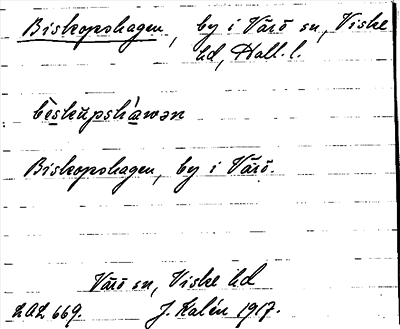 Biskopshagen, by i Värö sn, Viske
hd, Hall. l.
bèskupshàwən
Biskopshagen, by i Värö.
Värö sn, Viske hd
LAL 669. J. Kalén 1917.